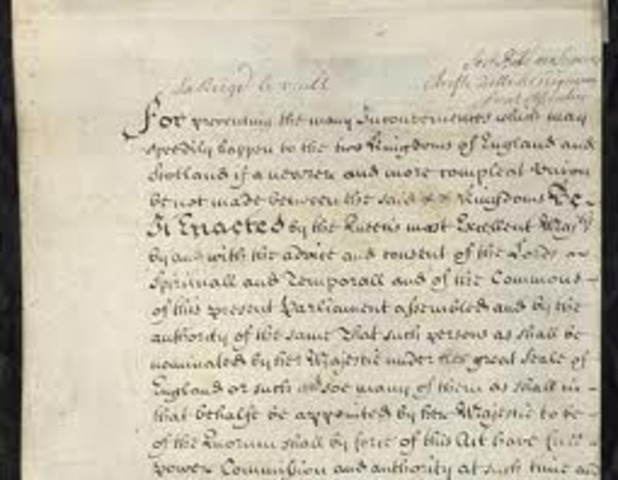 La Reyne le veult
For preventing the many Inconveniences which may
speedily happen to the two Kingdoms of England and
Scotland if a nearer and more compleat Union
be not made between the said Kingdoms Be
It Enacted by the Queens most Excellent Maj
by and with the advice and consent of the Lords
Spirituall and Temporall and of the Commons
of this present Parliament assembled and by the
authority of the same That such persons as shall be
nominated by her Majestie under the great Seale of
England or such and soe many of them as shall in
that behalfe be appointed by her Majestie to be
of the Quorum shall by force of this Act have full
power Commission and authority at such time and